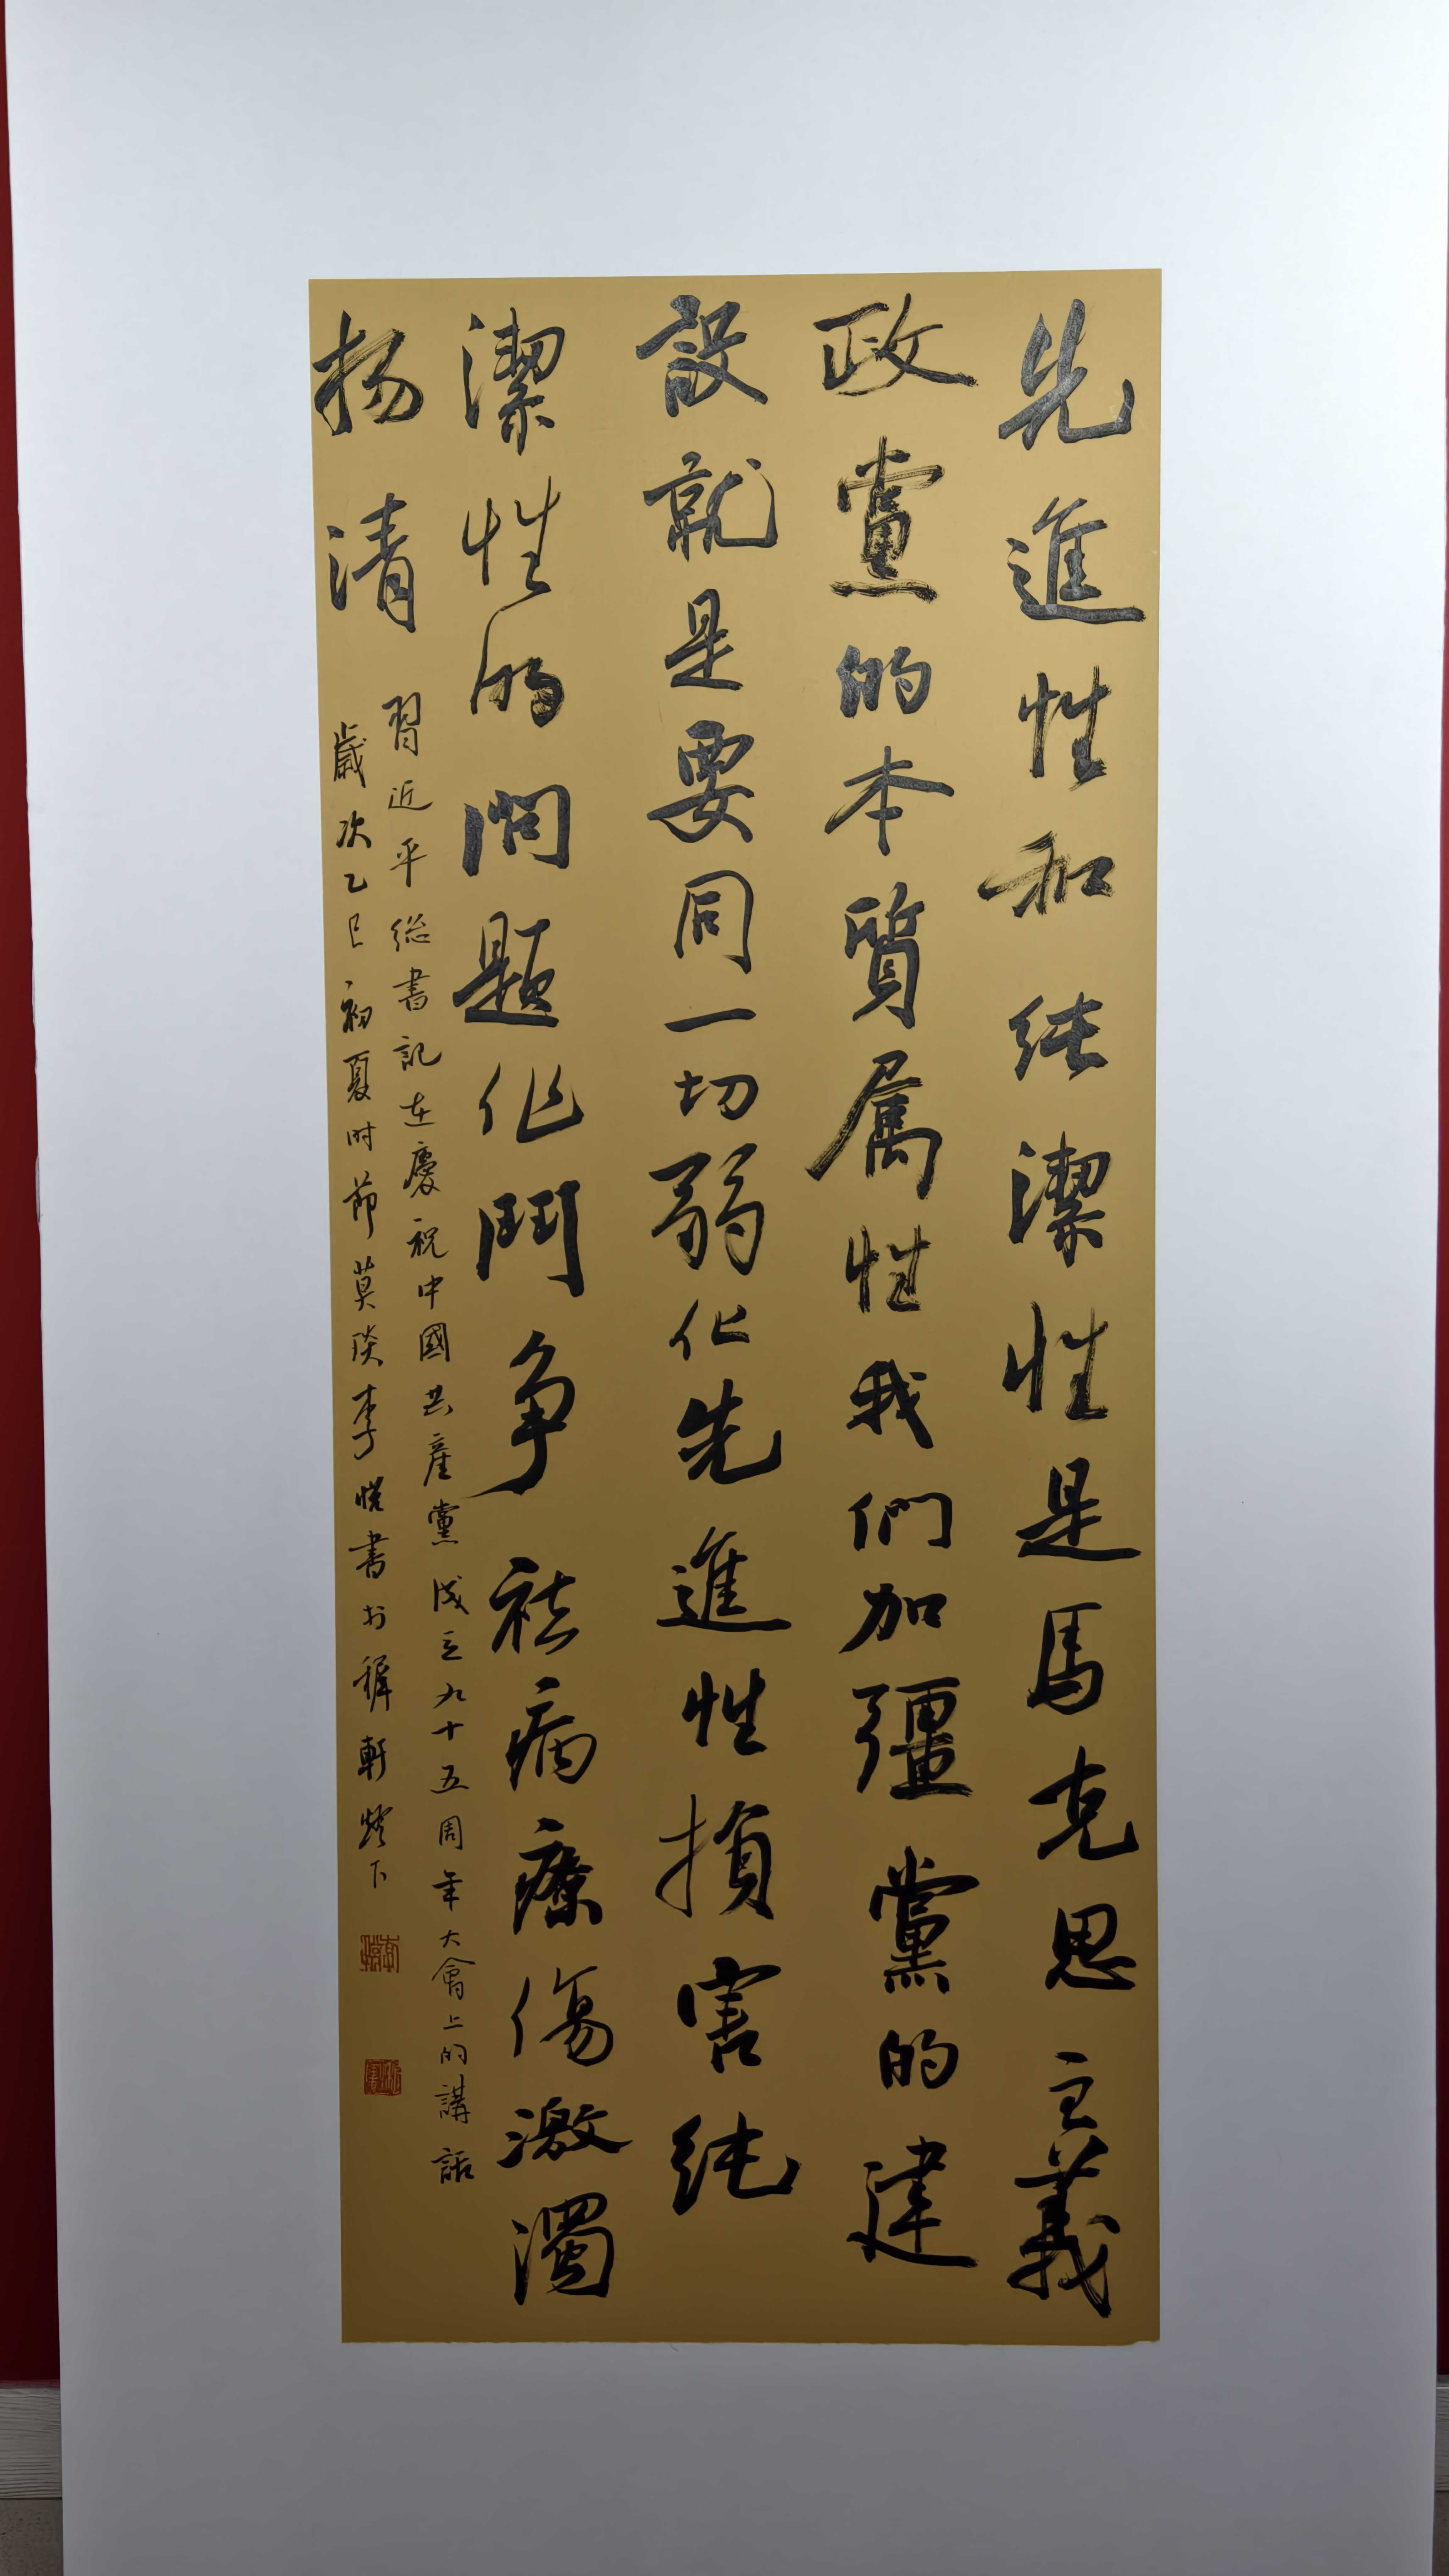 先進性和純潔性是馬克思主義
政黨的本質属性我們加彊黨的建
設就是要同一切弱化先進性損害純
潔性的問題作鬥争祛病療傷激濁
扬清
習近平総書記在慶祝中國共產黨成立九十五周年大會上的講話
歲次乙巳初夏时節莫琰李悦書於稺軒燈下